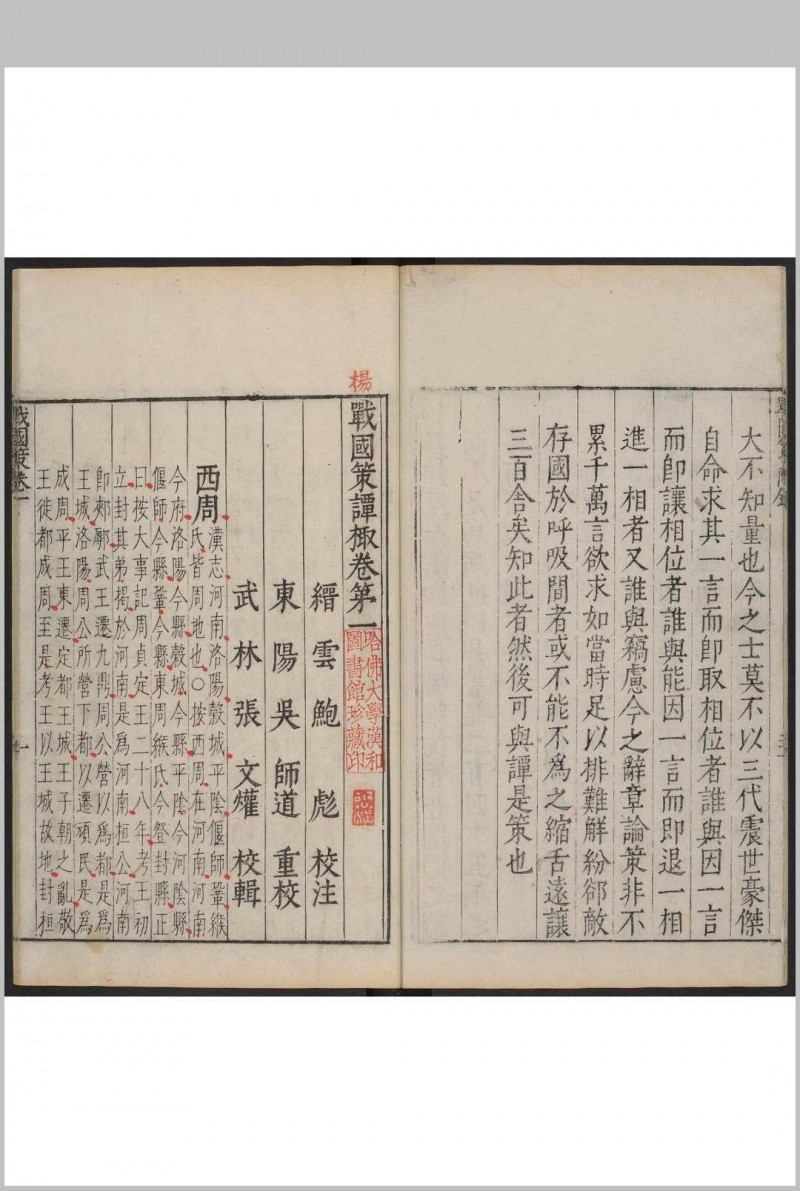 大不知量也今之士莫不以三代震世豪傑
自命求其一言而卽取相位者誰與因一言
而卽讓相位者誰與能因一言而卽退一相
進一相者又誰與竊慮今之辭章論策非不
累千萬言欲求如當時足以排難解紛郤敵
存國於呼吸間者或不能不爲之縮舌遠讓
三百舍矣知此者然後可與譚是策也
楊
戰國策譚棷卷第一
哈佛大學漢和
圖書館珍藏印
縉雲鮑彪校注
東陽吳師道重校
武林張文爟校輯
西周
漢志河南洛陽穀城平陰偃師鞏緱
氏皆周地也○按西周在河南河南
今府洛陽今縣穀城今縣平陰今河陰縣
偃師今縣鞏今縣東周緱氏今登封縣正
曰按大事記周貞定王二十八年考王初
立封其弟揭於河南是爲河南桓公河南
卽郟鄏武王遷九鼎周公營以爲都是爲
王城洛陽周公所營下都以遷頑民是爲
成周平王東遷定都王城王子朝之亂敬
王徙都成周至是考王以王城故地封桓
戰國策卷一
一